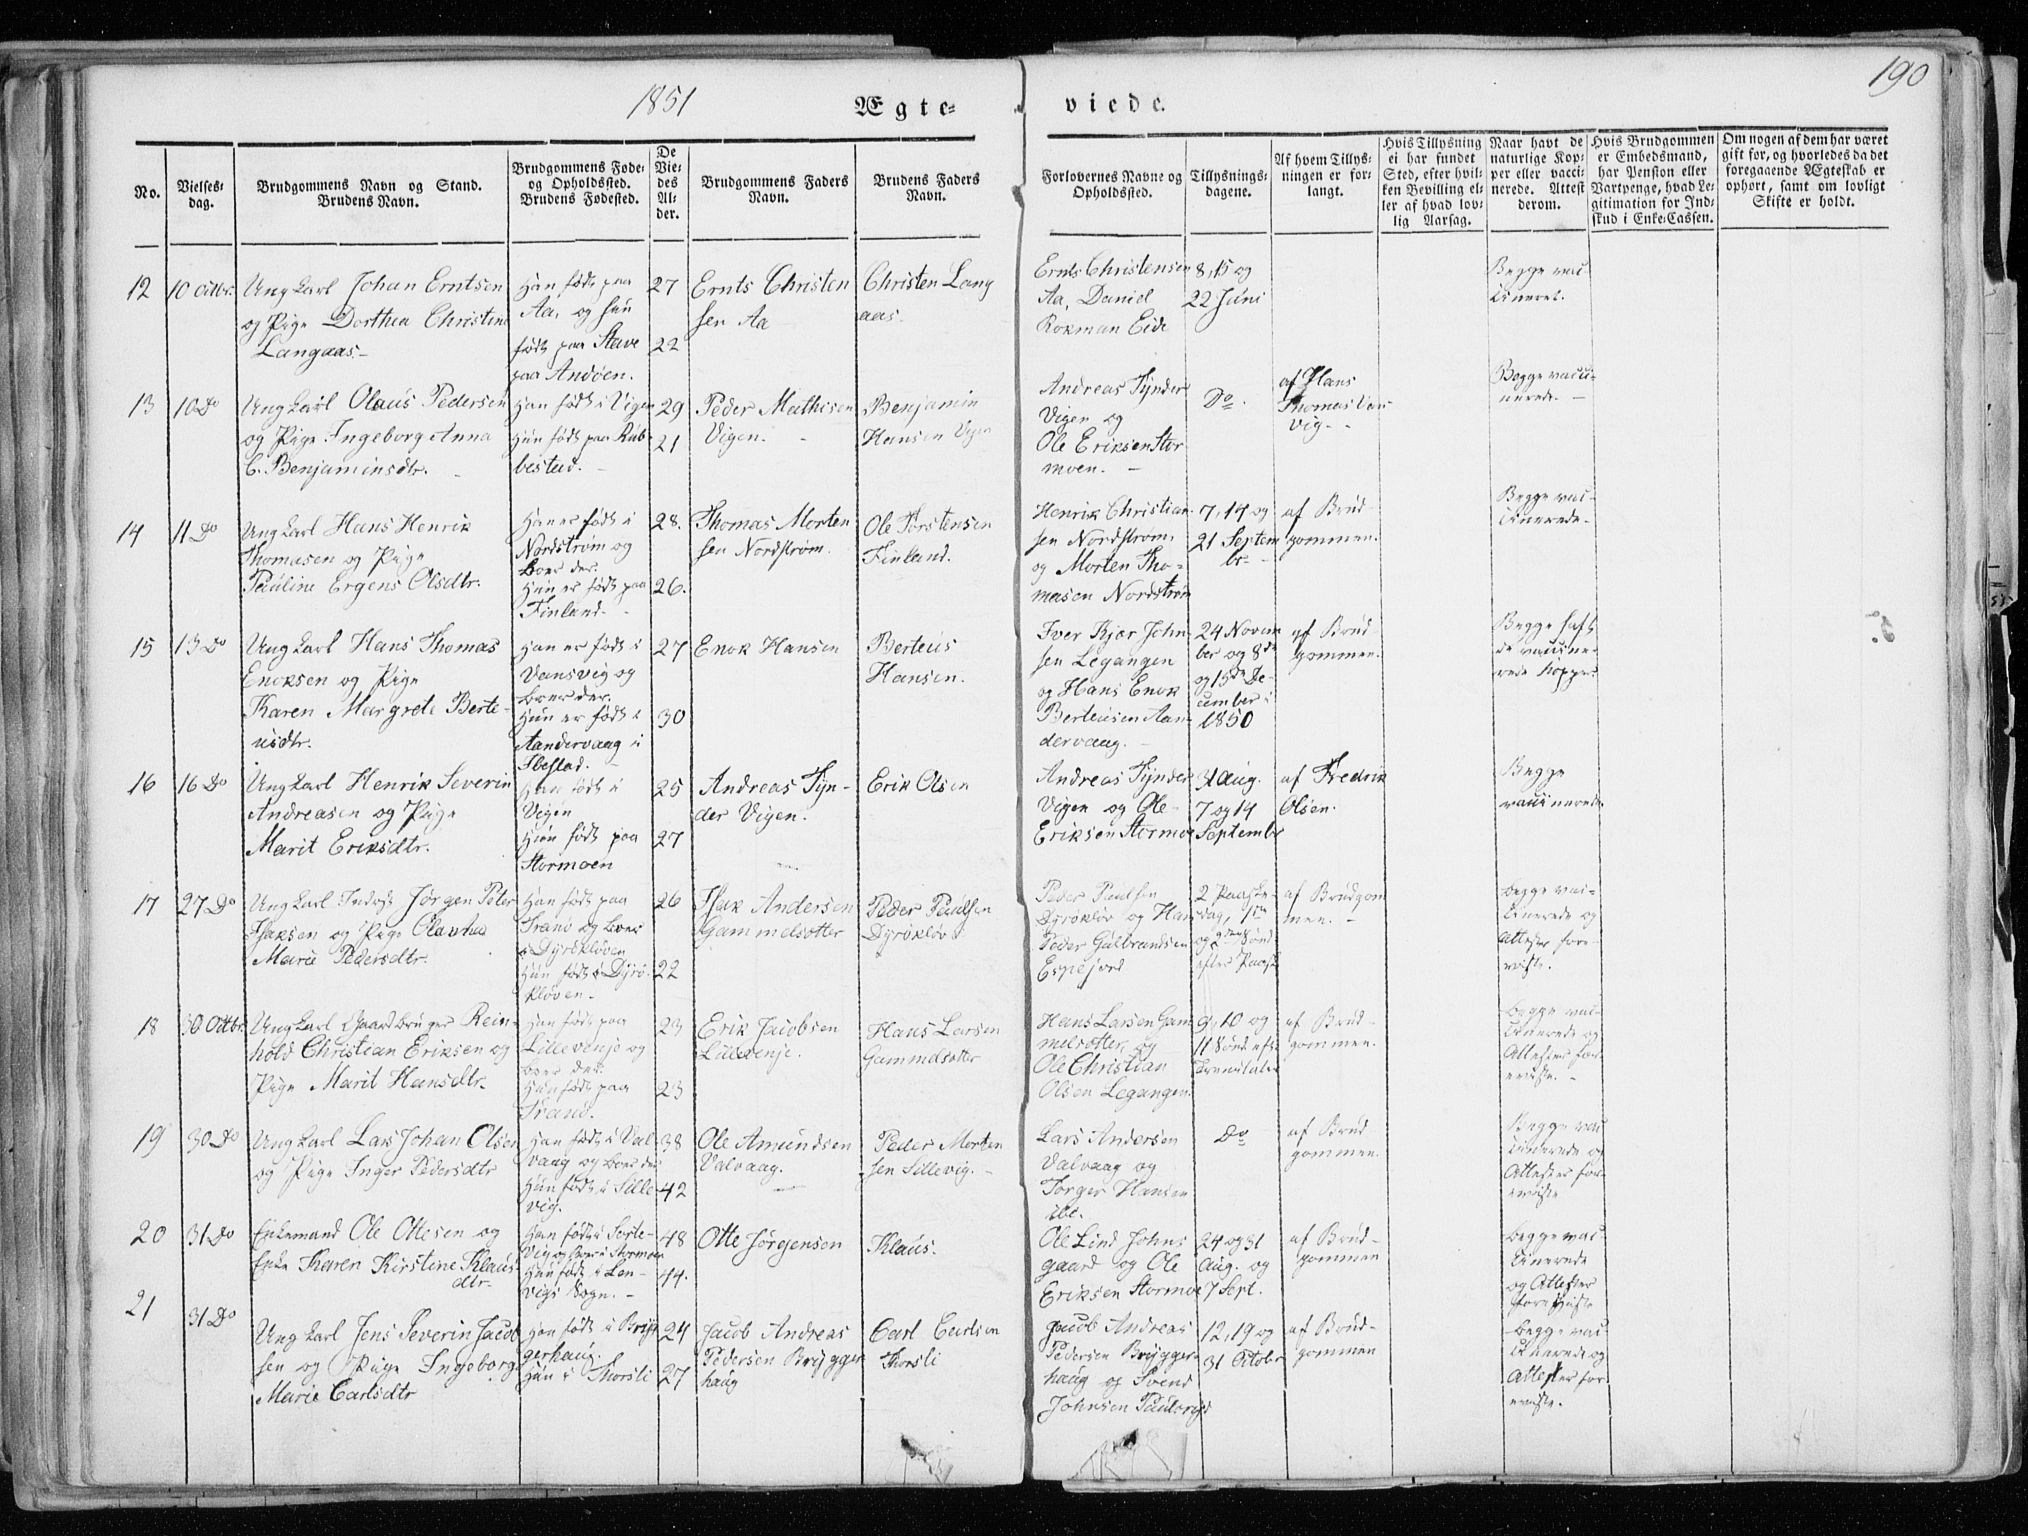 1851
Ægte-
viede.
190
No.
Vielses-
dag.
Brudgommens Navn og Stand.
Brudens Navn.
Brudgommens Føde-
og Opholdssted.
Brudens Fødested.
De
Vie-
des
Al-
der.
Brudgommens Faders
Navn.
Brudens Faders
Navn.
Forlovernes Navne og
Opholdssted.
Tillysnings-
dagene.
Af hvem Tillys-
ningen er for-
langt.
Hvis Tillysning
ei har fundet
Sted, efter hvil-
ken Bevilling el-
ler af hvad lov-
lig Aarsag.
Naar havt de
naturlige Kop-
per eller vacci-
nerede. Attest
derom.
Hvis Brudgommen
er Embedsmand,
har Pension eller
Vartpenge, hvad Le-
gitimation for Ind-
skud i Enke-Cassen.
Om nogen af dem har været
gift før, og hvorledes da det
foregaaende Ægteskab er
ophørt, samt om lovligt
Skifte er holdt.
12
10 Octbr.
Ungkarl Johan Erntsen
og Pige Dorthea Christine
Langaas.
Han født paa
Aa, og hun
født paa Stave
paa Andøen.
27
22
Ernts Christen
sen Aa
Christen Lang
aas.
Ernts Christensen
Aa, Daniel
Rokman Eide
8, 15 og
22 Juni
Begge vac-
cineret.
13
10 Do
Ungkarl Olaus Pedersen
og Pige Ingeborg Anna
C. Benjaminsdtr.
Han født i Vigen
Hun født paa Rub-
bestad.
29
21
Peder Mathisen
Vigen.
Benjamin
Hansen Vigen
Andreas Tynder
Vigen og
Ole Eriksen Stor
moen.
Do.
af Hans
Thomas Van
vig.
Begge vacci-
nerede.
14
11 Do
Ungkarl Hans Henrik
Thomasen og Pige
Pauline Ergens Olsdtr.
Han er født i
Nordstrøm og
boer der.
Hun er født paa
Finland.
28.
26.
Thomas Morten
sen Nordstrøm.
Ole Torstensen
Finland.
Henrik Christian
sen Nordstrøm,
og Morten Tho-
masen Nordstrøm
7, 14 og
21 Septem
br.
af Brud-
gommen.
Begge vac-
cinerede.
15
13 Do
Ungkarl Hans Thomas
Enoksen og Pige
Karen Margrete Berte-
usdtr.
Han er født i
Vansvig og
boer der.
Hun er født i
Aandervaag i
Ibestad.
27
30
Enok Hansen
Berteus
Hansen.
Iver Kjær John-
sen Legangen
og Hans Enok
Berteusen Aan-
dervaag.
24 Novem
ber og 8de
og 15de De-
cember i
1850
af Brud-
gommen.
Begge haft
de vaccine-
rede Kopper
16
16 Do
Ungkarl Henrik Severin
Andreasen og Pige
Marit Eriksdtr.
Han født i
Vigen
Hun født paa
Stormoen
25
27
Andreas Tyn-
der Vigen.
Erik Olsen
Andreas Tynder
Vigen og Ole
Eriksen Stormoe
31 Aug.
7 og 14
September
af Fredrik
Olsen.
Begge
vaccinerede.
17
27 Do
Ungkarl Inderst Jørgen Peter
Isaksen og Pige Olavha
Marie Pedersdtr.
Han født paa
Tranø og boer
i Dyrøkløven
Hun født i Dyrø-
kløven.
26
22
Isak Andersen
Gammelsætter
Peder Paulsen
Dyrøkløv
Peder Paulsen
Dyrøkløv og Han
Peder Gulbrandsen
Espejord
2 Paaske-
dag, 1ste
og 2den Sønd
efter Paaske
af Brudgom
men.
Begge vac-
cinerede og
Attester fore-
viste.
18
30 Octbr.
Ungkarl Gaardbruger Rein-
hold Christian Eriksen og
Pige Marit Hansdtr.
Han født paa
Lillevenje og
boer der
Hun født paa
Tranø.
23
23
Erik Jacobsen
Lillevenje.
Hans Larsen
Gammelsætter
Hans Larsen Gam
melsætter, og
Ole Christian
Olsen Legangen.
9, 10 og
11 Sønd. efter
Trenitates
af Brud-
gommen.
Begge vac-
cinerede og
Attester for-
eviste.
19
30 Do
Ungkarl Lars Johan Olsen
og Pige Inger Pedersdtr
Han født i Val
vaag og boer der
Hun født i Lille
vig.
38
42
Ole Amundsen
Valvaag.
Peder Morten
sen Lillevig.
Lars Andersen
Valvaag og
Torger Hansen
ibd.
Do
af Brud
gommen.
Begge vac
cinerede og
Attester for
eviste
20
31 Do
Enkemand Ole Ottesen og
Enke Karen Kirstine Klaus-
dtr.
Han født i Sorte-
vig og boer i Stormoen
Hun født i Len-
vigs Sogn.
48
44.
Otte Jørgensen
Klaus.
Ole Lind Johns
gaard og Ole
Eriksen Stormoe
24 og 31
Aug. og
7 Sept.
af Brud-
gommen
Begge vac
cinerede
og Attester
foreviste
21
31 Do
Ungkarl Jens Severin Jacob
sen og Pige Ingeborg
Marie Carlsdtr
Han født i Bryg
gerhaug.
Hun i Thorsli
24
27
Jacob Andreas
Pedersen Brygger
haug
Carl Carlsen
Thorsli
Jacob Andreas
Pedersen Brygger
haug og Svend
Johnsen
12, 19 og
31 Octobr
af Brud-
gommen
Begge vac
cinerede og
Attester for
eviste.